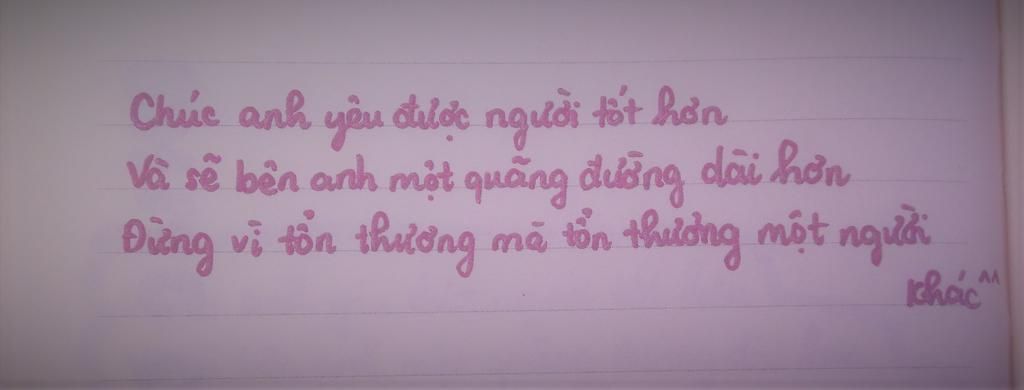 Chúc anh yêu được người tốt hơn
Và sẽ bên anh một quãng đường dài hơn
Đừng vì tổn thương mà tổn thương một người
khác ^^